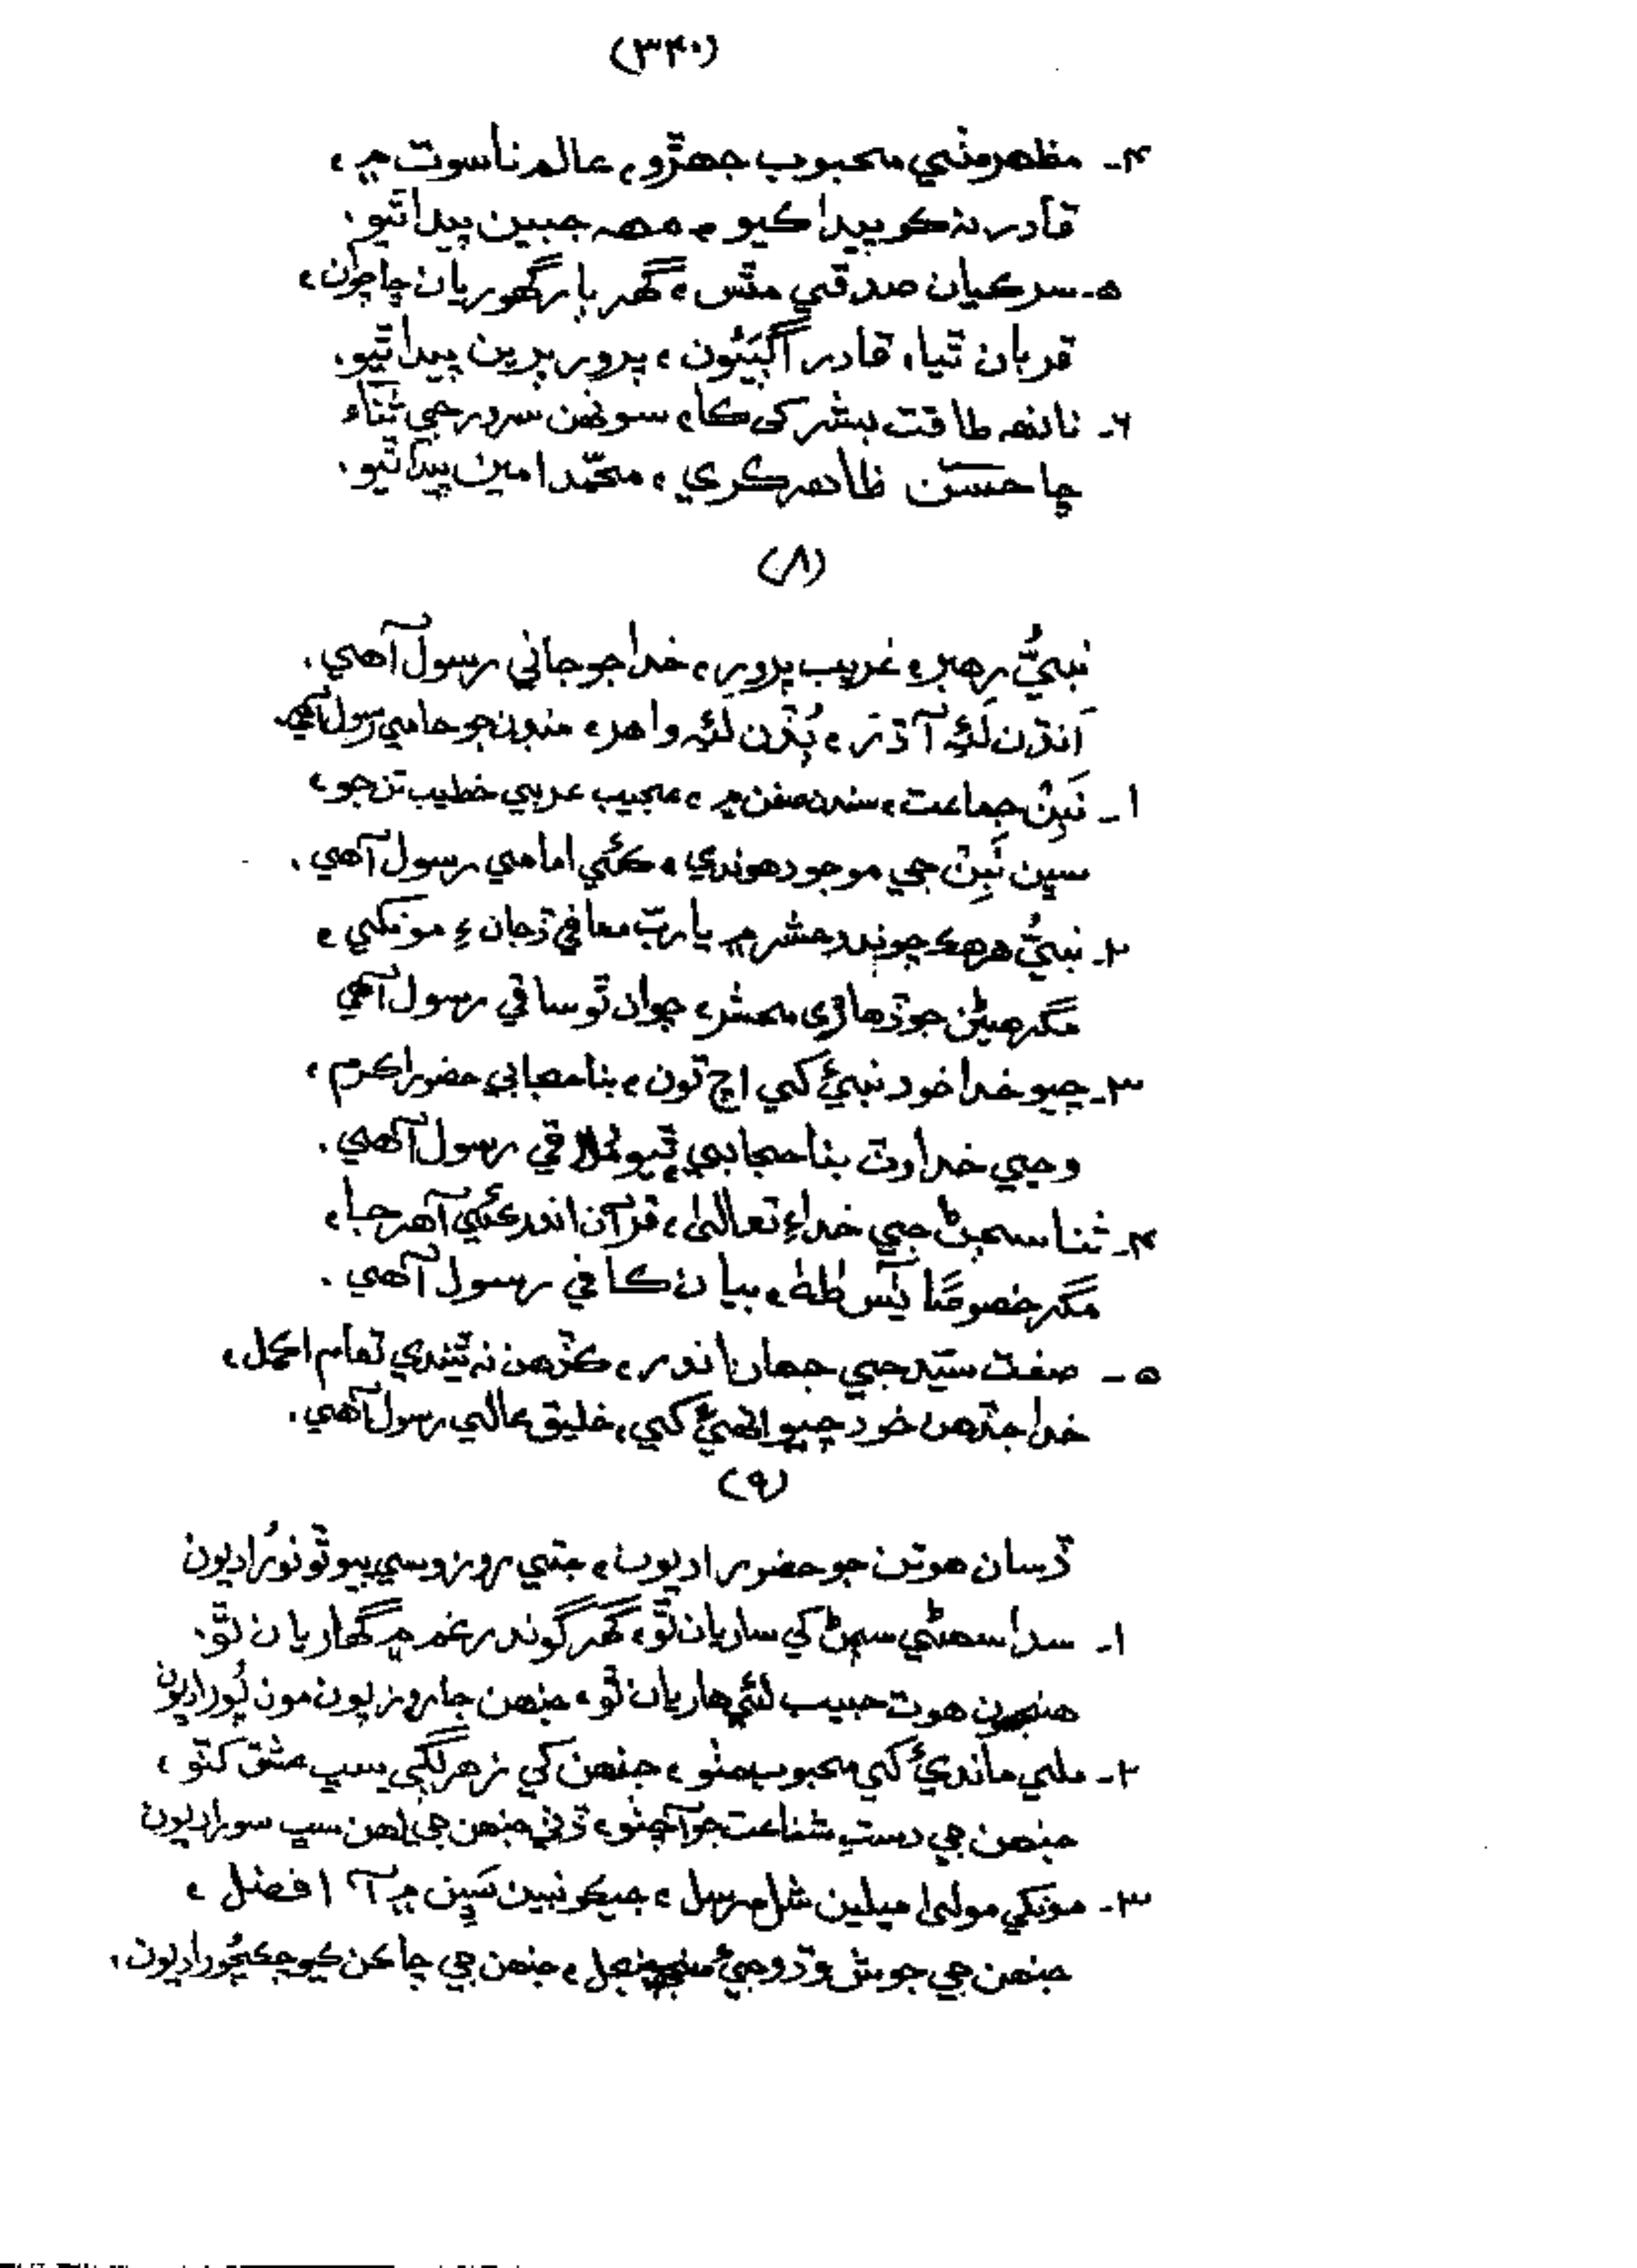 (٣٤٠)
٤- مظهر مٺي محبوب جهڙو، عالم ناسوت ۾،
قادر نه ڪو پيدا ڪيو، مهہ جبين پيدا ٿيو.
٥- سر ڪيان صدقي مٿس، گهر ٻار گهوريان ڇا چوان،
قربان ٿيا، قادر اڳيئون، پرور پرين پيدا ٿيو.
٦- نانهہ طاقت بشر کي ڪا، سونهن سرور جي ثناء
ڇا حسن ظاهر ڪري، محمّد امين پيدا ٿيو.
(٨)
نبيُّ رهبر، غريب پرور، خدا جو جاني رسول آهي.
اَنڌن لَئِہ آ ڌر، ٻُڏن لئہ واهر، جو حامي رسول آهي
١- نَبِن جماعت، سندن صفن ۾، عجيب عربي خطيب تن جو،
سڀن نَبِن جي موجود هوندي، ڪئي امامي رسول آهي.
٢- نبيُّ هرهڪ چوندو حشر ۾ يارب معافي ڏجانءِ مونکي،
مگر هيڻن جو ڏهاڙي محشر، چوان ٿو ساقي رسول آهي
٣- چيو خدا خود نبيءَ کي اچ تون، بنا حجابي حضور اڪرم،
وڃي خدا وٽ بنا حجابي ٿيو ملاقي رسول آهي.
٤- ثنا سڄڻ جي خداءِ تعاليٰ، قرآن اندر ڪئي آهر جا،
مگر خصوصًا يٰس طٰهٰ، بيان ڪافي رسول آهي.
٥- صفت سيّد جي جهان اندر، ڪڏهن نہ ٿيندي تمام اڪمل،
خدا جڏهن خود چيو انهيءَ کي، خليق عالي رسول آهي.
(٩)
ڏسان هوتن جو حضور اديون، جتي روز وسي پيو ٿو نُور اديون
١- سدا سهڻي سڄڻ کي ساريان ٿو، گهر گوندر غم ۾ گهاريان ٿو.
هنجون هوت حبيب لئي هاريان ٿو، جنهن جا روز پون مون پُور اديون
٢- ملي ماندي کي محبوب مٺو، جنهن کي زهر لڳي سڀ عشق ڪٺو،
جنهن جي دست شفاعت جو آ چٺو، ڏني جنهن جي اهن سڀ سور اديون
٣- مونکي موليٰ ميلين شل مرسل، جيڪو نبين سَڀن ۾ آ افضل،
جنهن جي جوش وڌو جيءُ جل، جنهن جي چاڪن ڪيو چڪچُور اديون.